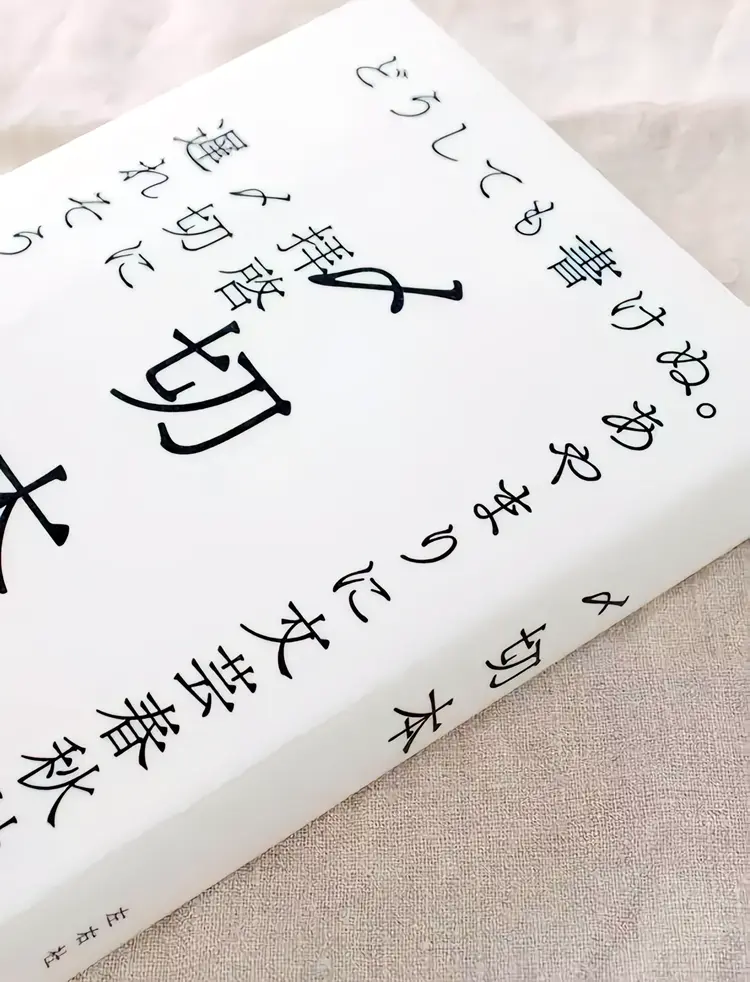 どうしても書けぬ。
あやまりに文芸春秋
拝啓
〆切に
遅れそう
〆切本
〆切本
左右社